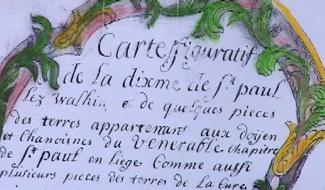 Carte figuratif
de la dixme de St. paul
lez walhin, & de quelques pieces
des terres appartenant aux doÿen
et Chanoines du venerable chapitre
de St. paul en liege Comme aussi
plusieurs pieces des terres de la Cure